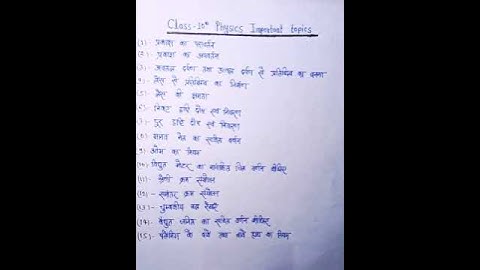 Class-10th Physics Important topics
(1)- प्रकाश का परावर्तन
(2)- प्रकाश का अपवर्तन
(3)- अवतल दर्पण तथा उत्तल दर्पण से प्रतिबिम्ब का बनना
(4)- लेंस से प्रतिबिम्ब का
(5)- लेंस की क्षमता
(6)- निकट दृष्टि दोष एवं निवारण
(7)- दूर दृष्टि दोष एवं निवारण
(8)- मानव नेत्र का सचित्र वर्णन
(9)- ओम का नियम
(10) विद्युत मोटर का चित्र वर्णन कीजिए
(11)- श्रेणी क्रम संयोजन
(12)- समांतर क्रम संयोजन
(13)- चुम्बकीय बल रेखाएं
(14)- विद्युत जनित्र का सचित्र वर्णन कीजिए
(15)- फ्लेमिंग के दायें तथा बायें हाथ का नियम